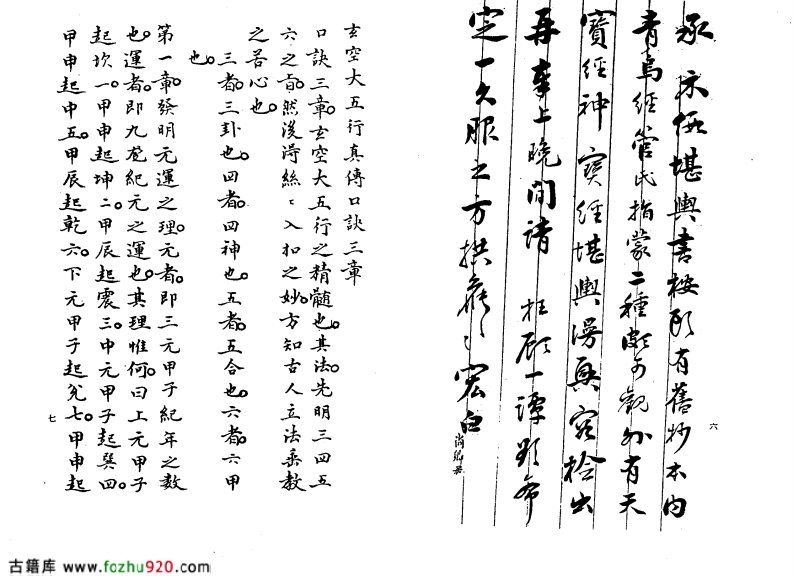 承示堪輿書所有舊抄本內
青烏經管氏指蒙二種頗可觀外有天
寶經神寶經堪輿漫興容撿出
再奉上晚間請 枉顧一譚希
定一久服之方拱〻宏白
六
玄空大五行真傳口訣三章
口訣三章。玄空大五行之精髓也。其法先明三四五
六之旨。然後得絲〻入扣之妙。方知古人立法垂教
之苦心也。
三者。三卦也。四者。四神也。五者。五合也。六者。六甲
也。
第一章發明元運之理。元者。即三元甲子紀年之數
也。運者。即九宮紀元之運也。其理惟何。曰上元甲子
起坎一。甲申起坤二。甲辰起震三。中元甲子起巽四。
甲申起中五。甲辰起乾六。下元甲子起兌七。甲申起
七
古籍库 www.fozhu920.com